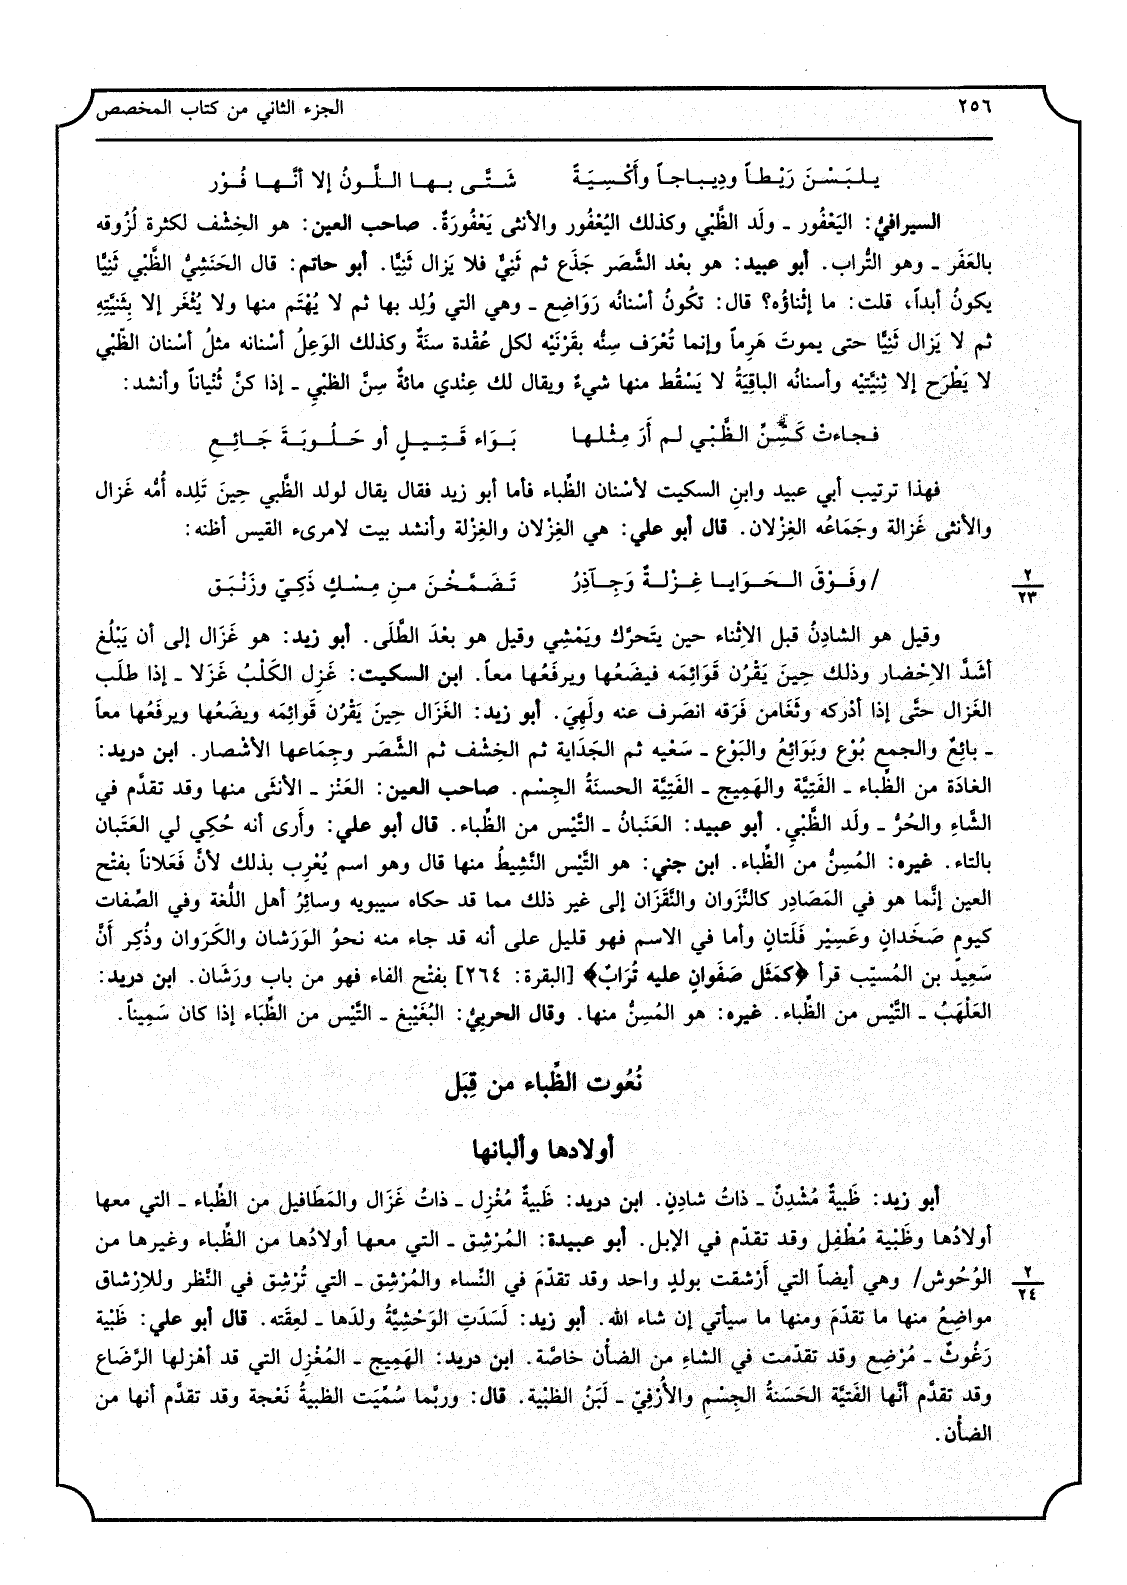 ٢٥٦ الجزء الثاني من كتاب المخصص
يلبَسْنَ رَيْطاً ودِيباجاً وأَكْسِيَةً شَتَّى بها اللَّونُ إلا أنَّها فُوْر
السيرافيُّ: اليَعْفُور ـ ولَد الظَّبْي وكذلك اليُعْفُور والأنثى يَعْفُورَةٌ. صاحب العين: هو الخِشْف لكثرة لُزُوقه
بالعَفَر ـ وهو التُّراب. أبو عبيد: هو بعد الشَّصَر جَذَع ثم ثَنِيٌّ فلا يَزال ثَنِيًّا. أبو حاتم: قال الحَنَشِيُّ الظَّبْي ثَنِيًّا
يكونُ أبداً، قلت: ما إثْناؤُه؟ قال: تكُونُ أسْنانُه رَوَاضِع ـ وهي التي وُلِد بها ثم لا يُهْتَم منها ولا يُثْغَر إلا بِثَنيَّتِهِ
ثم لا يَزال ثَنِيًّا حتى يموتَ هَرِماً وإنما تُعْرَف سِنُّه بقَرْنَيْه لكل عُقْدة سنَةٌ وكذلك الوَعِلُ أسْنانه مثلُ أسْنان الظَّبْي
لا يَطْرَح إلا ثِنيَّتِيْه وأسنانُه الباقِيَةُ لا يَسْقُط منها شيءٌ ويقال لك عِنْدي مائةٌ سِنَّ الظبْيِ ـ إذا كنَّ ثُنْياناً وأنشد:
فجاءتْ كَسِنِّ الظَّبْي لم أَرَ مِثْلها بَوَاء قَتِيلٍ أو حَلُوبَةَ جَائِعِ
فهذا ترتيب أبي عبيد وابنِ السكيت لأسْنان الظِّباء فأما أبو زيد فقال يقال لولد الظَّبي حِينَ تَلِده أُمُّه غَزال
والأنثى غَزالة وجَمَاعُه الغِزْلان. قال أبو علي: هي الغِزْلان والغِزْلة وأنشد بيت لامرىء القيس أظنه:
/ وفَوْقَ الحَوَايا غِزْلةٌ وَجآذِرُ تَضَمَّخْنَ من مِسْكٍ ذَكِيّ وزَنْبَق
٢
٢٣
وقيل هو الشادِنُ قبل الاِثْناء حين يتَحرَّك ويَمْشِي وقيل هو بعْدَ الطَّلَى. أبو زيد: هو غَزَال إلى أن يَبْلُغ
أشَدَّ الاِحْضار وذلك حِينَ يَقْرُن قَوَائِمَه فيضَعُها ويرفَعُها معاً. ابن السكيت: غَزِل الكَلْبُ غَزَلا ـ إذا طلَب
الغَزال حتَّى إذا أدْركه وثَغَامن فَرَقه انصَرف عنه ولَهِيَ. أبو زيد: الغَزَال حِينَ يَقْرُن قَوائِمَه ويضَعُها ويرفَعُها معاً
ـ بائِعٌ والجمع بُوْع وبَوَائِعُ والبَوْع ـ سَعْيه ثم الجَدَاية ثم الخِشْف ثم الشَّصَر وجِمَاعها الأشْصار. ابن دريد:
الغادَة من الظِّباء ـ الفَتِيَّة والهَمِيج ـ الفَتِيَّة الحسنَةُ الجِسْم. صاحب العين: العَنْز ـ الأنثَى منها وقد تقدَّم في
الشَّاءِ والحُرُّ ـ ولَد الظَّبْي. أبو عبيد: العَنَبانُ ـ التَّيْس من الظِّباء. قال أبو علي: وأرى أنه حُكِي لي العَتَبان
بالتاء. غيره: المُسِنُّ من الظِّباء. ابن جني: هو التَّيْس النَّشِيطُ منها قال وهو اسم يُعْرِب بذلك لأنَّ فَعَلاناً بفتْح
العين إنَّما هو في المَصَادِر كالنَّزَوان والنَّقَزَان إلى غير ذلك مما قد حكاه سيبويه وسائِرُ أهل اللُّغة وفي الصِّفات
كيومٍ صَخَدانٍ وعَسِيْر فَلَتانٍ وأما في الاسم فهو قليل على أنه قد جاء منه نحوُ الوَرَشان والكَرَوان وذُكِر أنَّ
سَعِيدَ بن المُسيّب قرأ ﴿كمَثَل صَفَوانٍ عليه تُرَابٌ﴾ [البقرة: ٢٦٤] بفتْح الفاء فهو من باب ورَشَان. ابن دريد:
العَلْهَبُ ـ التَّيْس من الظِّباء. غيره: هو المُسِنُّ منها. وقال الحربيُّ: البُغَيْبِغ ـ التَّيْس من الظِّبَاء إذا كان سَمِيناً.
نُعُوت الظِّباء من قِبَل
أولادها وألبانها
أبو زيد: ظَبيةٌ مُشْدِنٌ ـ ذاتُ شادِنٍ. ابن دريد: ظَبيةٌ مُغْزِل ـ ذاتُ غَزَال والمَطَافيل من الظِّباء ـ التي معها
أولادُها وظَبْية مُطْفِل وقد تقدّم في الإبل. أبو عبيدة: المُرْشِق ـ التي معها أولادُها من الظِّباء وغيرها من
الوُحُوش/ وهي أيضاً التي أَرْشقت بولدٍ واحد وقد تقدّمَ في النِّساء والمُرْشِق ـ التي تُرْشِق في النَّظر وللاِرْشاق
٢
٢٤
مواضِعُ منها ما تقدّمَ ومنها ما سيأتي إن شاء الله. أبو زيد: لَسَدَتِ الوَحْشِيَّةُ ولدَها ـ لعِقَته. قال أبو علي: ظَبْية
رَغُوثٌ ـ مُرْضِع وقد تقدّمت في الشاءِ من الضأن خاصّة. ابن دريد: الهَمِيج ـ المُغْزِل التي قد أهْزلها الرَّضَاع
وقد تقدَّم أنَّها الفَتيَّة الحَسَنةُ الجِسْمِ والأُرْفِيّ ـ لَبَنُ الظبْية. قال: وربَّما سُمِّيَت الظبيةُ نَعْجة وقد تقدَّم أنها من
الضأن.